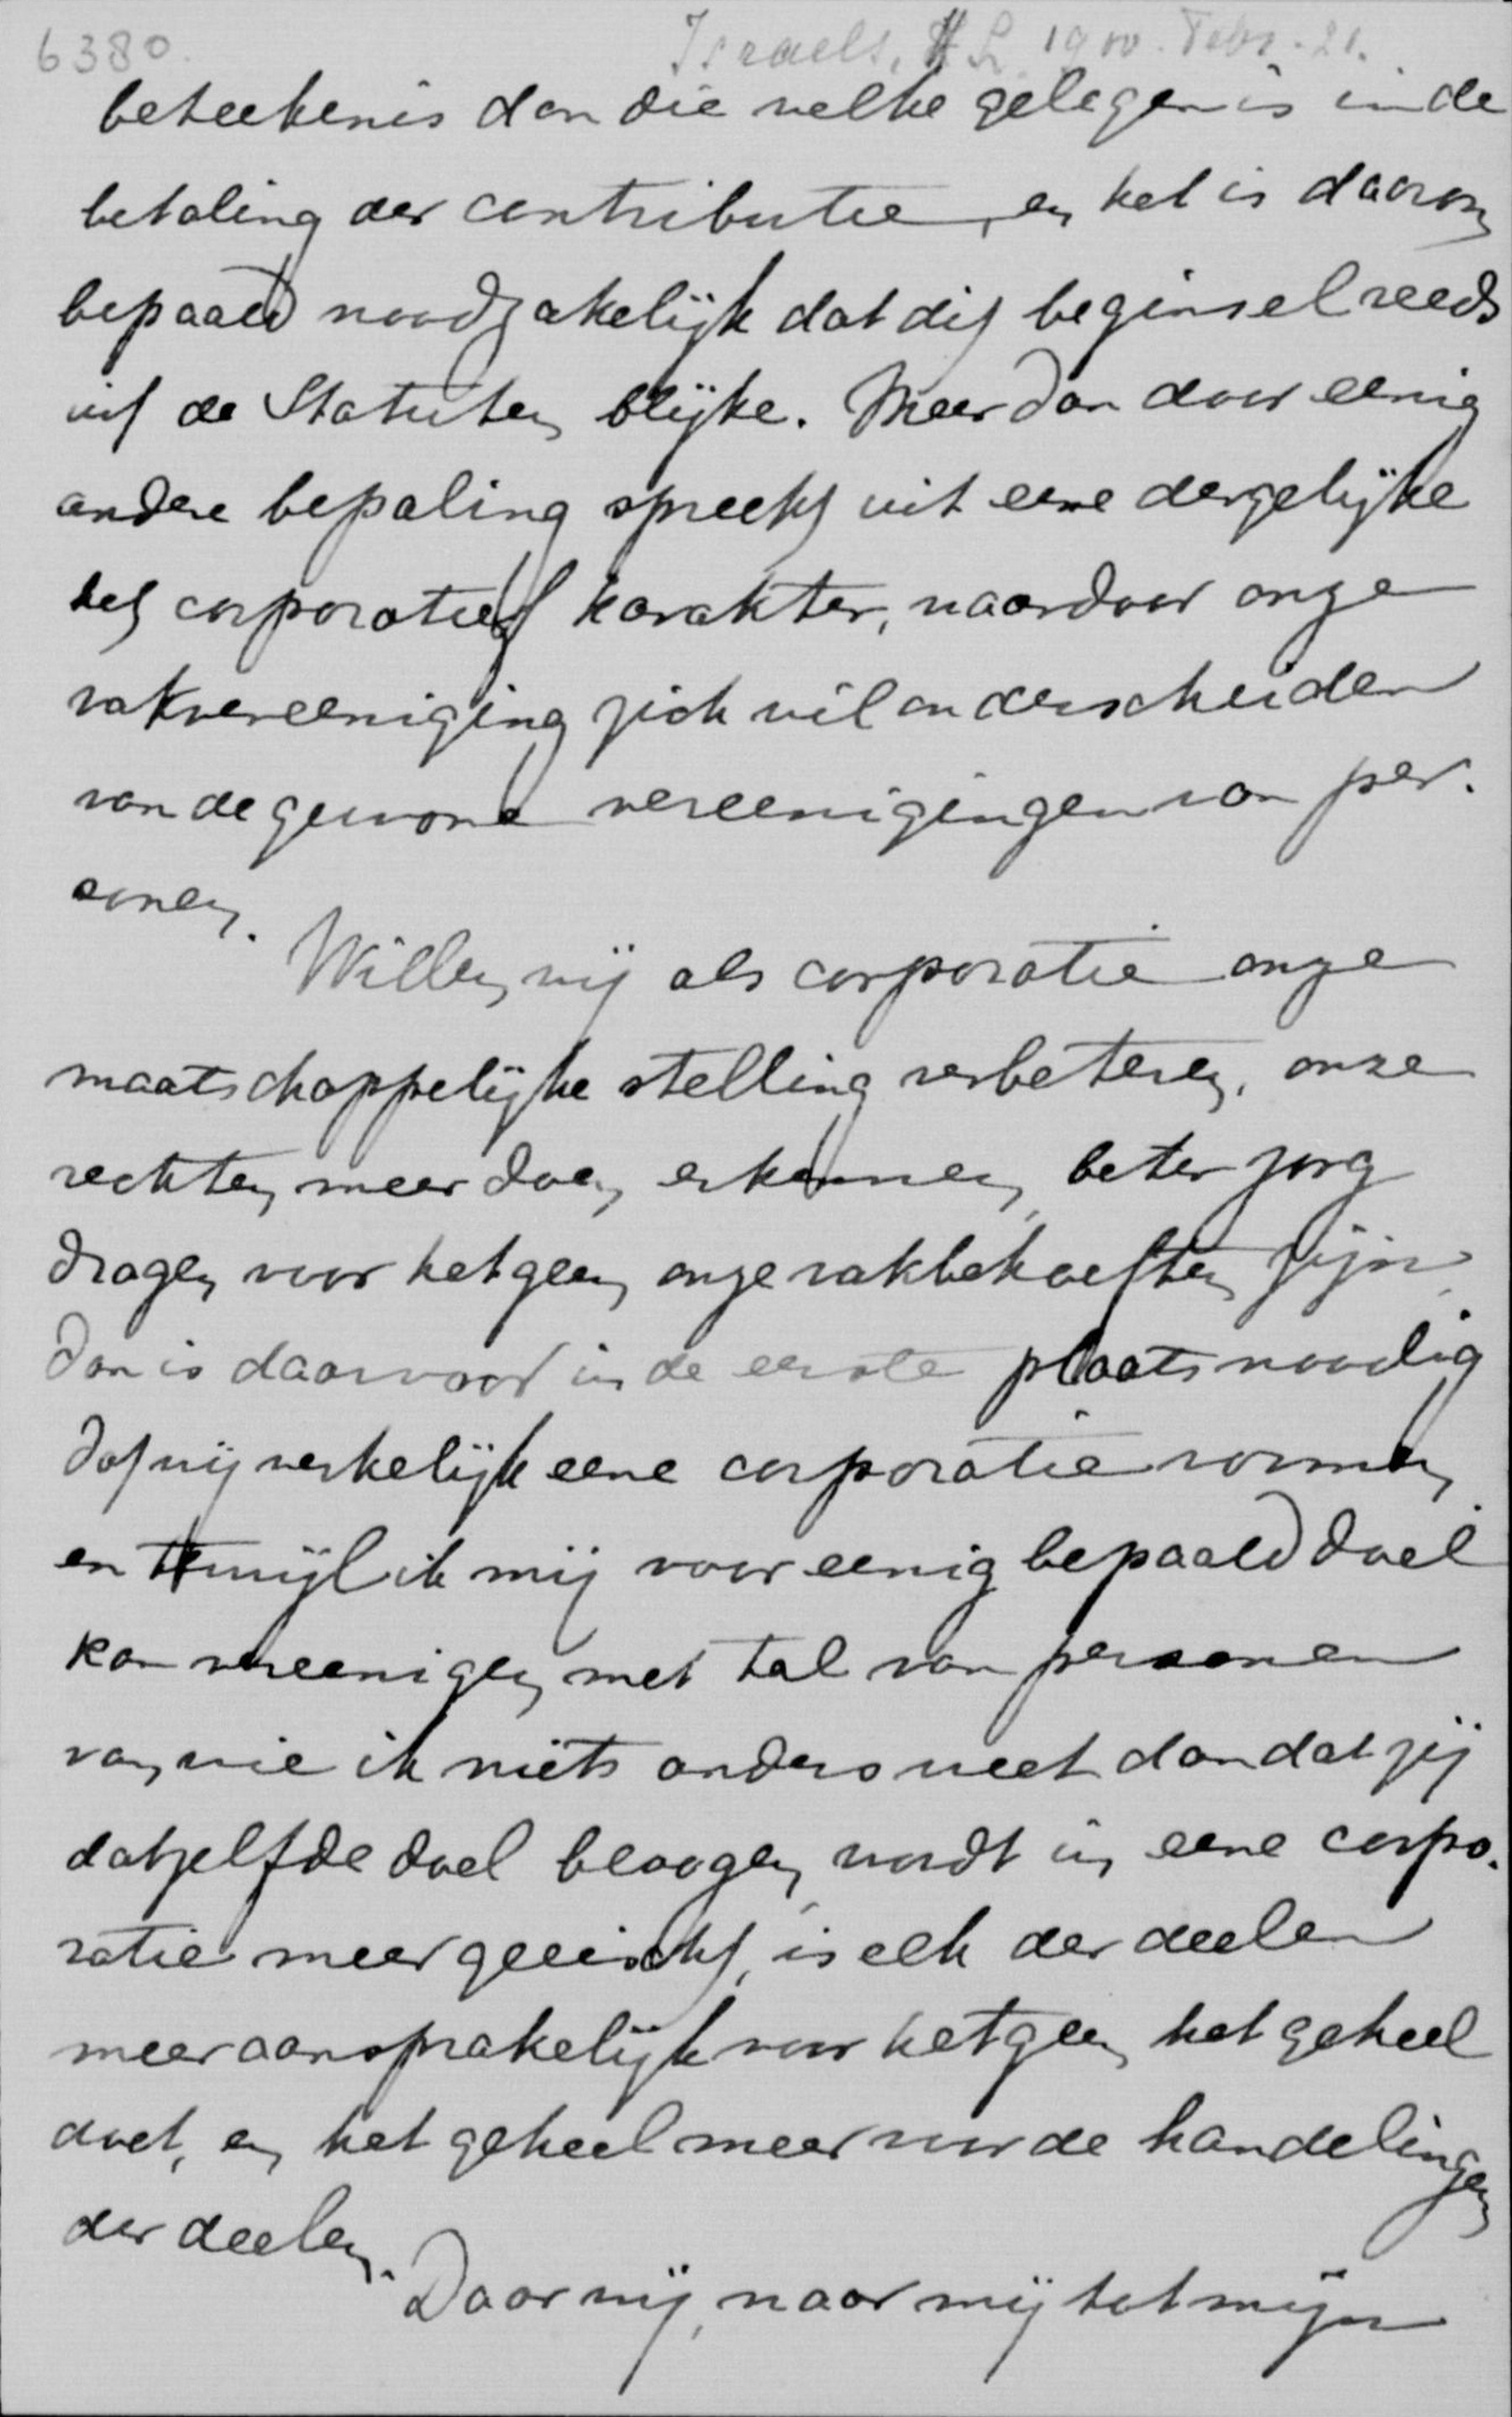 6380. Israels, H L 1900. Febr. 21.
beteekenis dan die welke gelegen is in de
betaling der contributie, en het is daarom
bepaald noodzakelijk dat dit beginsel reeds
uit de Statuten blijke. Meer dan door eenig
andere bepaling spreekt uit eene dergelijke
het corporatief karakter, waardoor onze
vakvereeniging zich wil onderscheiden
van de gewone vereenigingen van per-
sonen.
Willen wij als corporatie onze
maatschappelijke stelling verbeteren, onze
rechten meer doen erkennen, beter zorg
dragen voor hetgeen onze vakbehoeften zijn,
dan is daarvoor in de eerste plaats noodig
dat wij werkelijk eene corporatie vormen,
en terwijl ik mij voor eenig bepaald doel
kan vereenigen met tal van personen
van wie ik niets anders weet dan dat zij
datzelfde doel beoogen, wordt in eene corpo-
ratie meer geëischt, is elk der deelen
meer aansprakelijk voor hetgeen het geheel
doet, en het geheel meer voor de handelingen
der deelen.
Daar wij, naar mij tot mijn